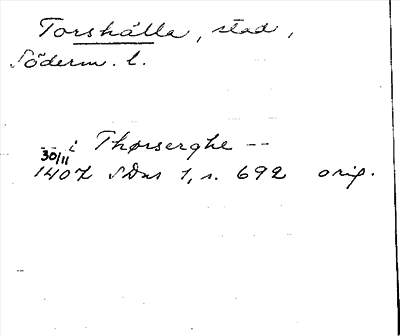 Torshälla, stad,
Söderm. l.
-- i Thorserghe --
30/11
1407 SDns 1, s. 692 orig.